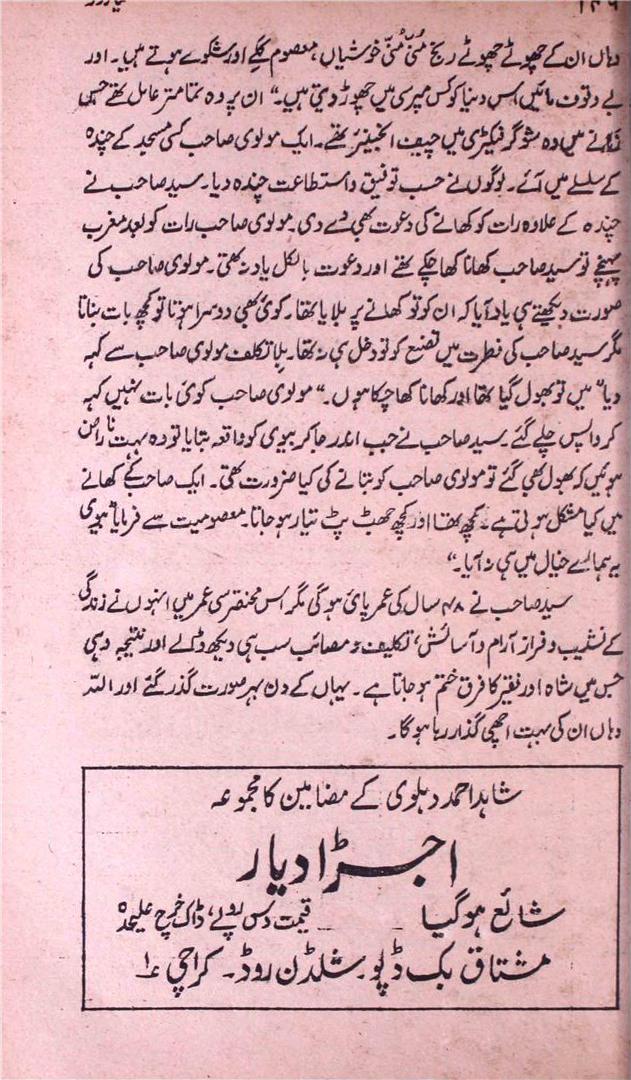 ۱۴۶
وہاں ان کے چھوٹے چھوٹے رنج مُنّی مُنّی خوشیاں، معصوم گلے اور شکوے ہوتے ہیں۔ اور
بے وقوف مائیں اس دنیا کو کس میرسی میں چھوڑ دیتی ہیں۔" ان پر وہ تمامتر عامل تھے جس
زمانے میں وہ شوگر فیکٹری میں چیف انجینیر تھے۔ ایک مولوی صاحب کسی مسجد کے چندہ
کے سلسلے میں آئے۔ لوگوں نے حسب توفیق و استطاعت چندہ دیا۔ سید صاحب نے
چندہ کے علاوہ رات کو کھانے کی دعوت بھی دے دی۔ مولوی صاحب رات کو بعد مغرب
پہنچے تو سید صاحب کھانا کھا چکے تھے اور دعوت بالکل یاد نہ تھی۔ مولوی صاحب کی
صورت دیکھتے ہی یاد آیا کہ ان کو تو کھانے پر بلایا تھا۔ کوئی بھی دوسرا ہوتا تو کچھ بات بناتا
مگر سید صاحب کی فطرت میں تصنع کو تو دخل ہی نہ تھا۔ بلا تکلف مولوی صاحب سے کہہ
دیا "میں تو بھول گیا تھا اور کھانا کھا چکا ہوں۔" مولوی صاحب کوئی بات نہیں کہہ
کر واپس چلے گئے۔ سید صاحب نے جب اندر جا کر بیوی کو واقعہ بتایا تو وہ بہت ناراض
ہوئیں کہ بھول بھی گئے تو مولوی صاحب کو بتانے کی کیا ضرورت تھی۔ ایک صاحب کے کھانے
میں کیا مشکل ہوتی ہے۔ کچھ تھا اور کچھ جھٹ پٹ تیار ہو جاتا۔ معصومیت سے فرمایا "بیوی
یہ ہمارے خیال میں ہی نہ آیا۔"
سید صاحب نے ۴۸ سال کی عمر پائی ہوگی مگر اس مختصر سی عمر میں انہوں نے زندگی
کے نشیب و فراز آرام و آسائش، تکلیف و مصائب سب ہی دیکھ ڈالے اور نتیجہ وہی
جس میں شاہ اور فقیر کا فرق ختم ہو جاتا ہے۔ یہاں کے دن بہر صورت گذر گئے اور اللہ
وہاں ان کی بہت اچھی گذار رہا ہوگا۔
شاہد احمد دہلوی کے مضامین کا مجموعہ
اجڑا دیار
شائع ہو گیا _ _ قیمت دس روپے، ڈاک خرچ علیحدہ
مشتاق بک ڈپو۔ شلڈن روڈ۔ کراچی ۱